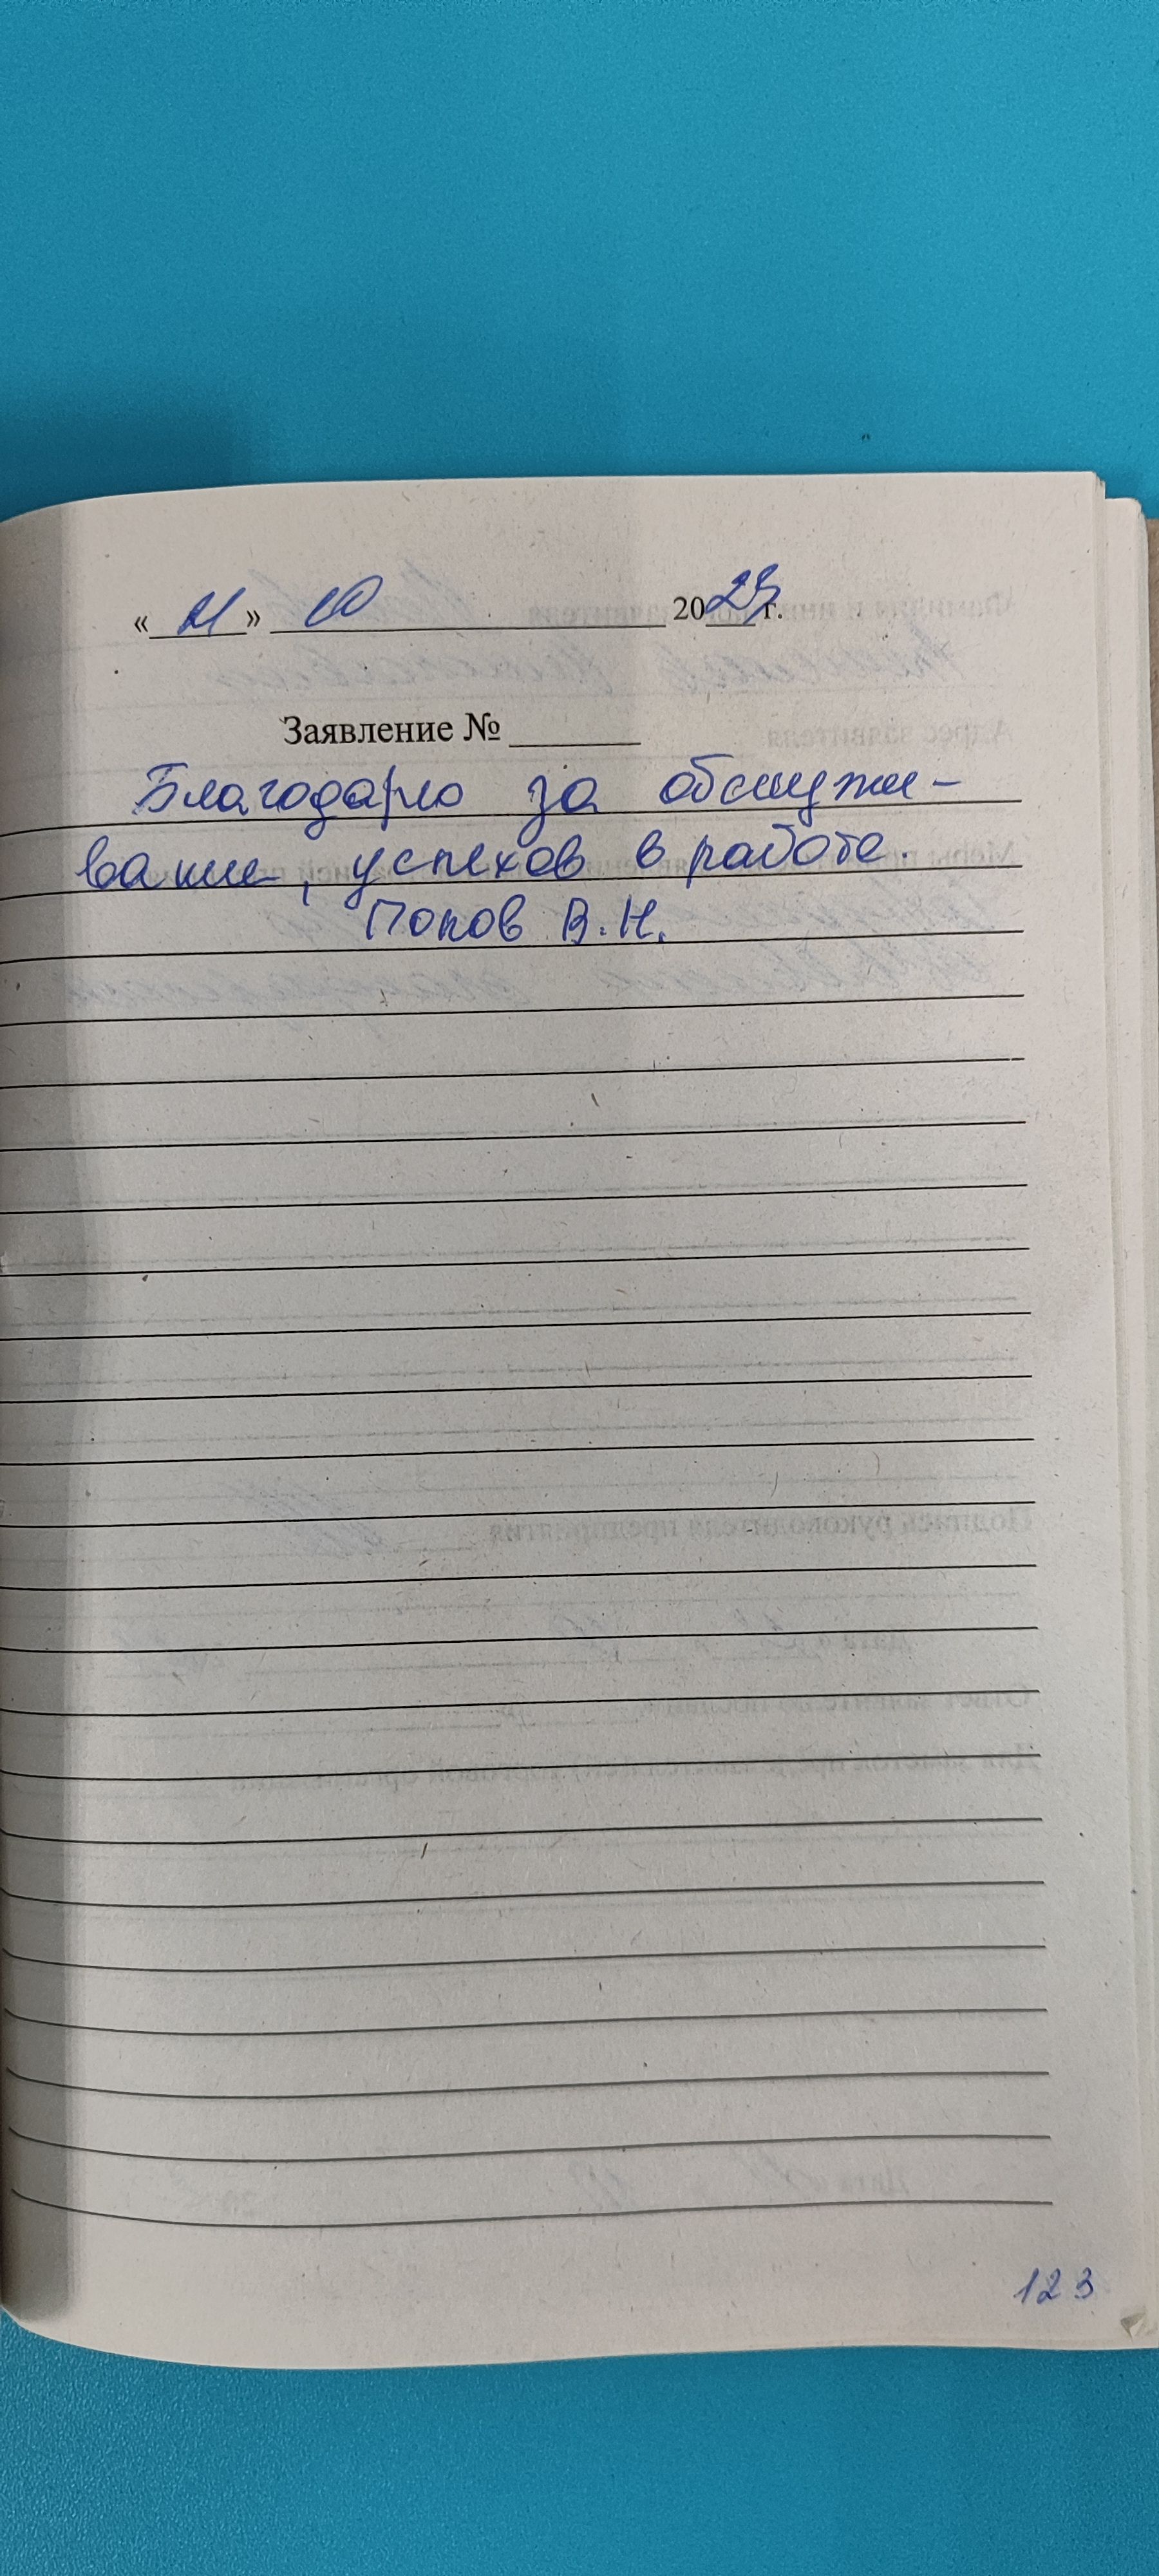 «21» 10 2023г.
Заявление №
Благодарю за обслужи-
вание, успехов в работе.
Попов В.Н.
123